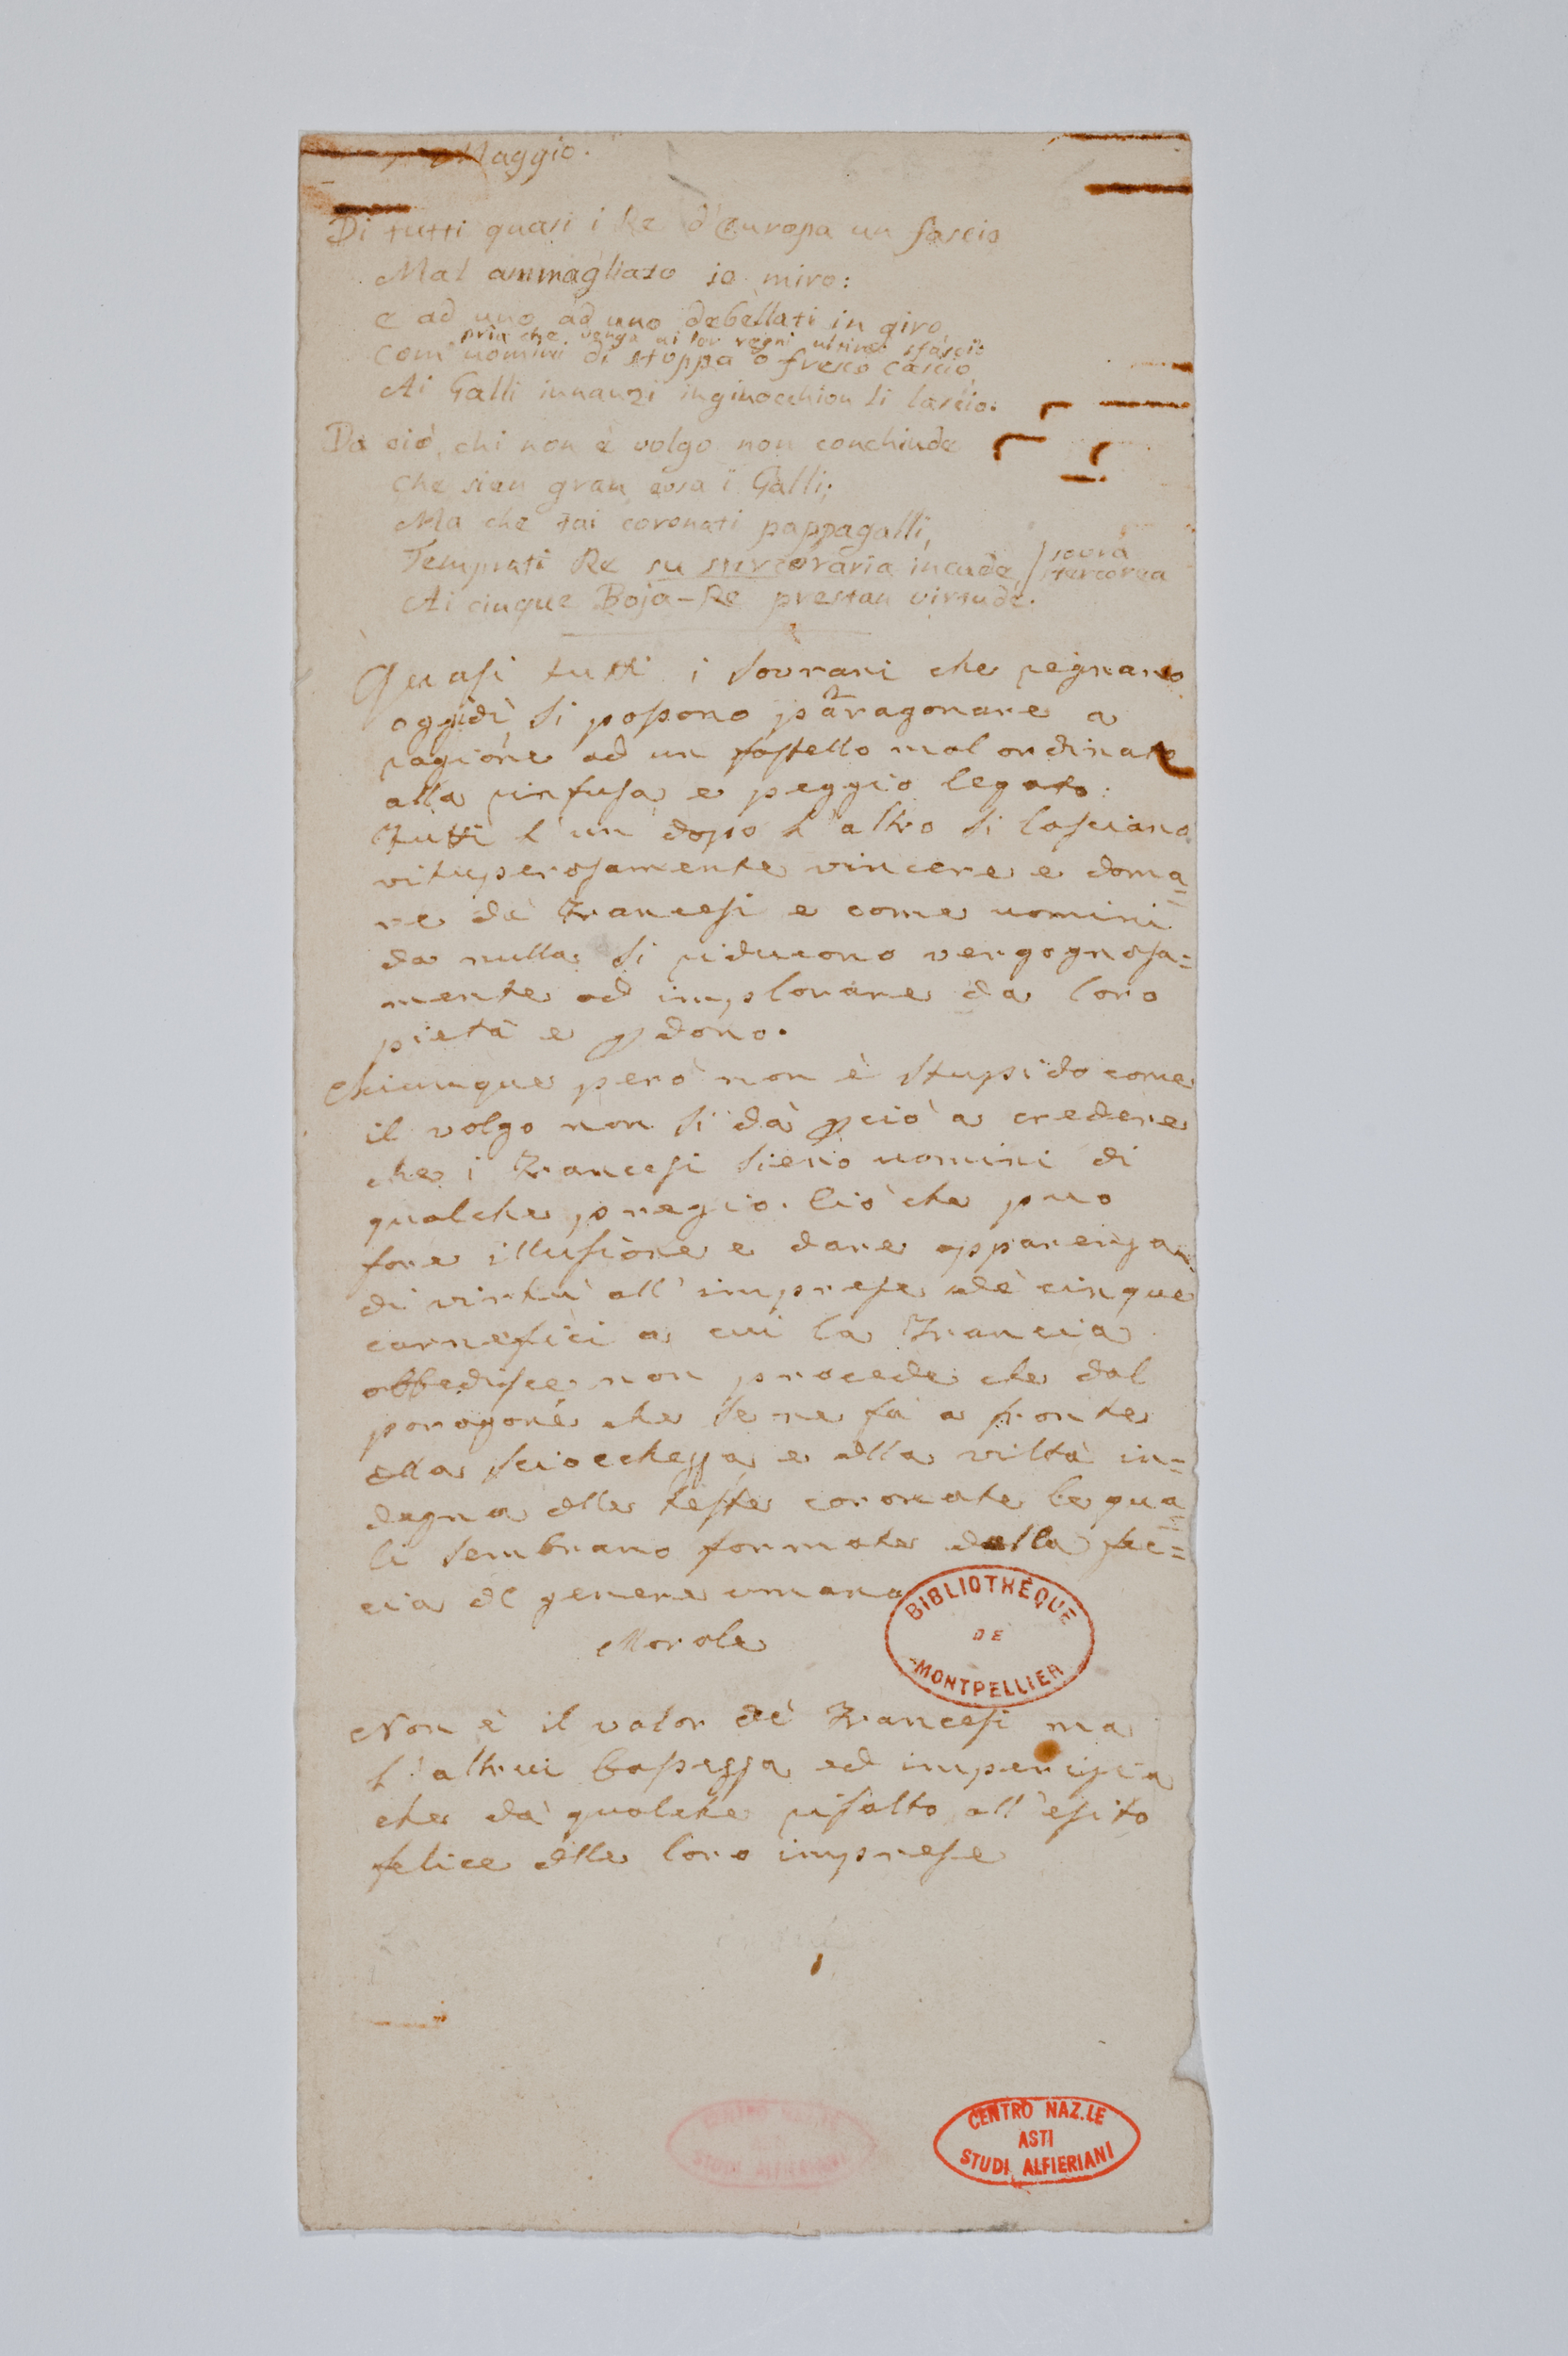 Maggio.
Di tutti quasi i Re d'Europa un fascio
Mal ammagliato io miro:
e ad uno ad uno debellati in giro,
pria che venga ai lor regni ultimo sfascio
com' uomini di stoppa o fresco cascio,
Ai Galli innanzi inginocchion li lascio.
Da ciò, chi non è volgo non conchiude
che sien gran cosa i Galli;
Ma che tai coronati pappagalli,
Temprati Re su stercoraria incude, / sovra
stercorea
Ai cinque Boja-Re prestan virtude.
Quasi tutti i Sovrani che regnano
oggidì, si possono paragonare a
ragione ad un fastello mal ordinato
alla rinfusa e peggio legato:
Tutti l'un dopo l'altro si lasciano
vituperosamente vincere e doma=
re da' Francesi e come uomini
da nulla si riducono vergognosa=
mente ad implorare da loro
pietà e pdono.
Chiunque però non è stupido come
il volgo non si dà pciò a credere
che i Francesi sieno uomini di
qualche pregio. Ciò che puo
fare illusione e dare apparenza
di virtù all'imprese de' cinque
carnefici a cui la Francia
obbedisce non procede che dal
paragone che se ne fa a fronte
dlla sciocchezza e dlla viltà in=
degna dlle teste coronate le qua=
li sembrano formate dalla fec=
cia dl genere umano
Morale
Non è il valor de' Francesi ma
l'altrui bassezza ed imperizia
che dà qualche risalto all'esito
felice dlle loro imprese
BIBLIOTHÈQUE
DE
MONTPELLIER
CENTRO NAZ.LE
STUDI ALFIERIANI
CENTRO NAZ.LE
ASTI
STUDI ALFIERIANI